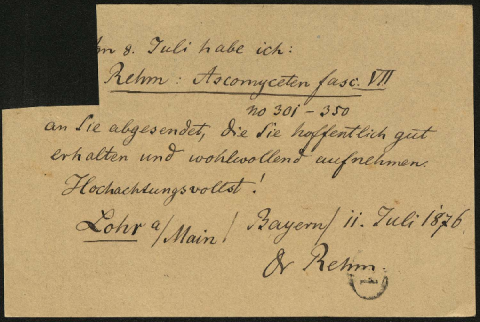 Am 8. Juli habe ich:
Rehm: Ascomyceten fasc. VII
no 301 – 350
an Sie abgesendet, die Sie hoffentlich gut
erhalten und wohlwollend aufnehmen.
Hochachtungsvollst!
Lohr a/Main/ Bayern/ 11. Juli 1876.
Dr Rehm.